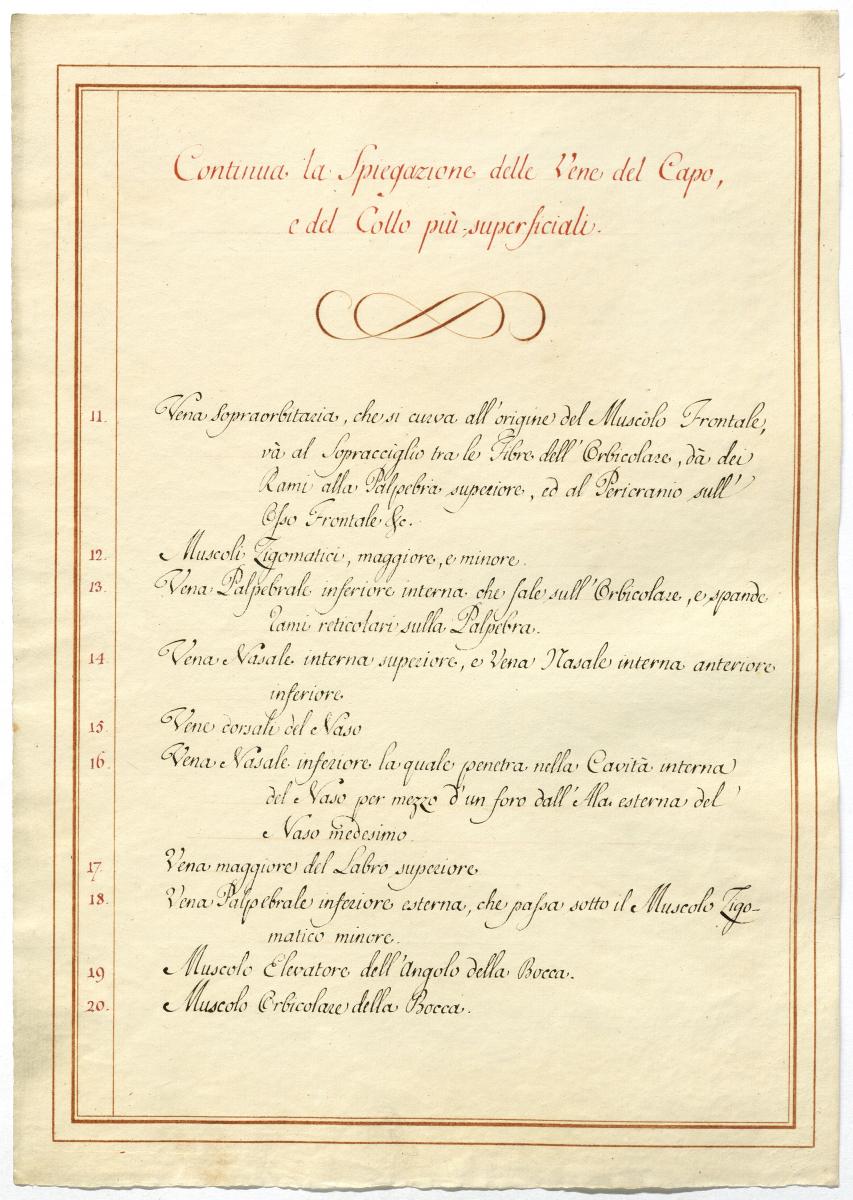 Continua la Spiegazione delle Vene del Capo,
e del Collo più superficiali.
11. Vena Sopraorbitaria, che si curva all'origine del Muscolo Frontale,
và al Sopracciglio tra le Fibre dell'Orbicolare, dà dei
Rami alla Palpebra superiore, ed al Pericranio sull'
Osso Frontale &c.
12. Muscoli Zigomatici, maggiore, e minore.
13. Vena Palpebrale inferiore interna che sale sull'Orbicolare, e spande
Rami reticolari sulla Palpebra.
14. Vena Nasale interna superiore, e Vena Nasale interna anteriore
inferiore
15. Vene dorsali del Naso
16. Vena Nasale inferiore la quale penetra nella Cavità interna
del Naso per mezzo d'un foro dall'Ala esterna del
Naso medesimo.
17. Vena maggiore del Labro superiore
18. Vena Palpebrale inferiore esterna, che passa sotto il Muscolo Zigo-
matico minore.
19 Muscolo Elevatore dell'Angolo della Bocca.
20. Muscolo Orbicolare della Bocca.